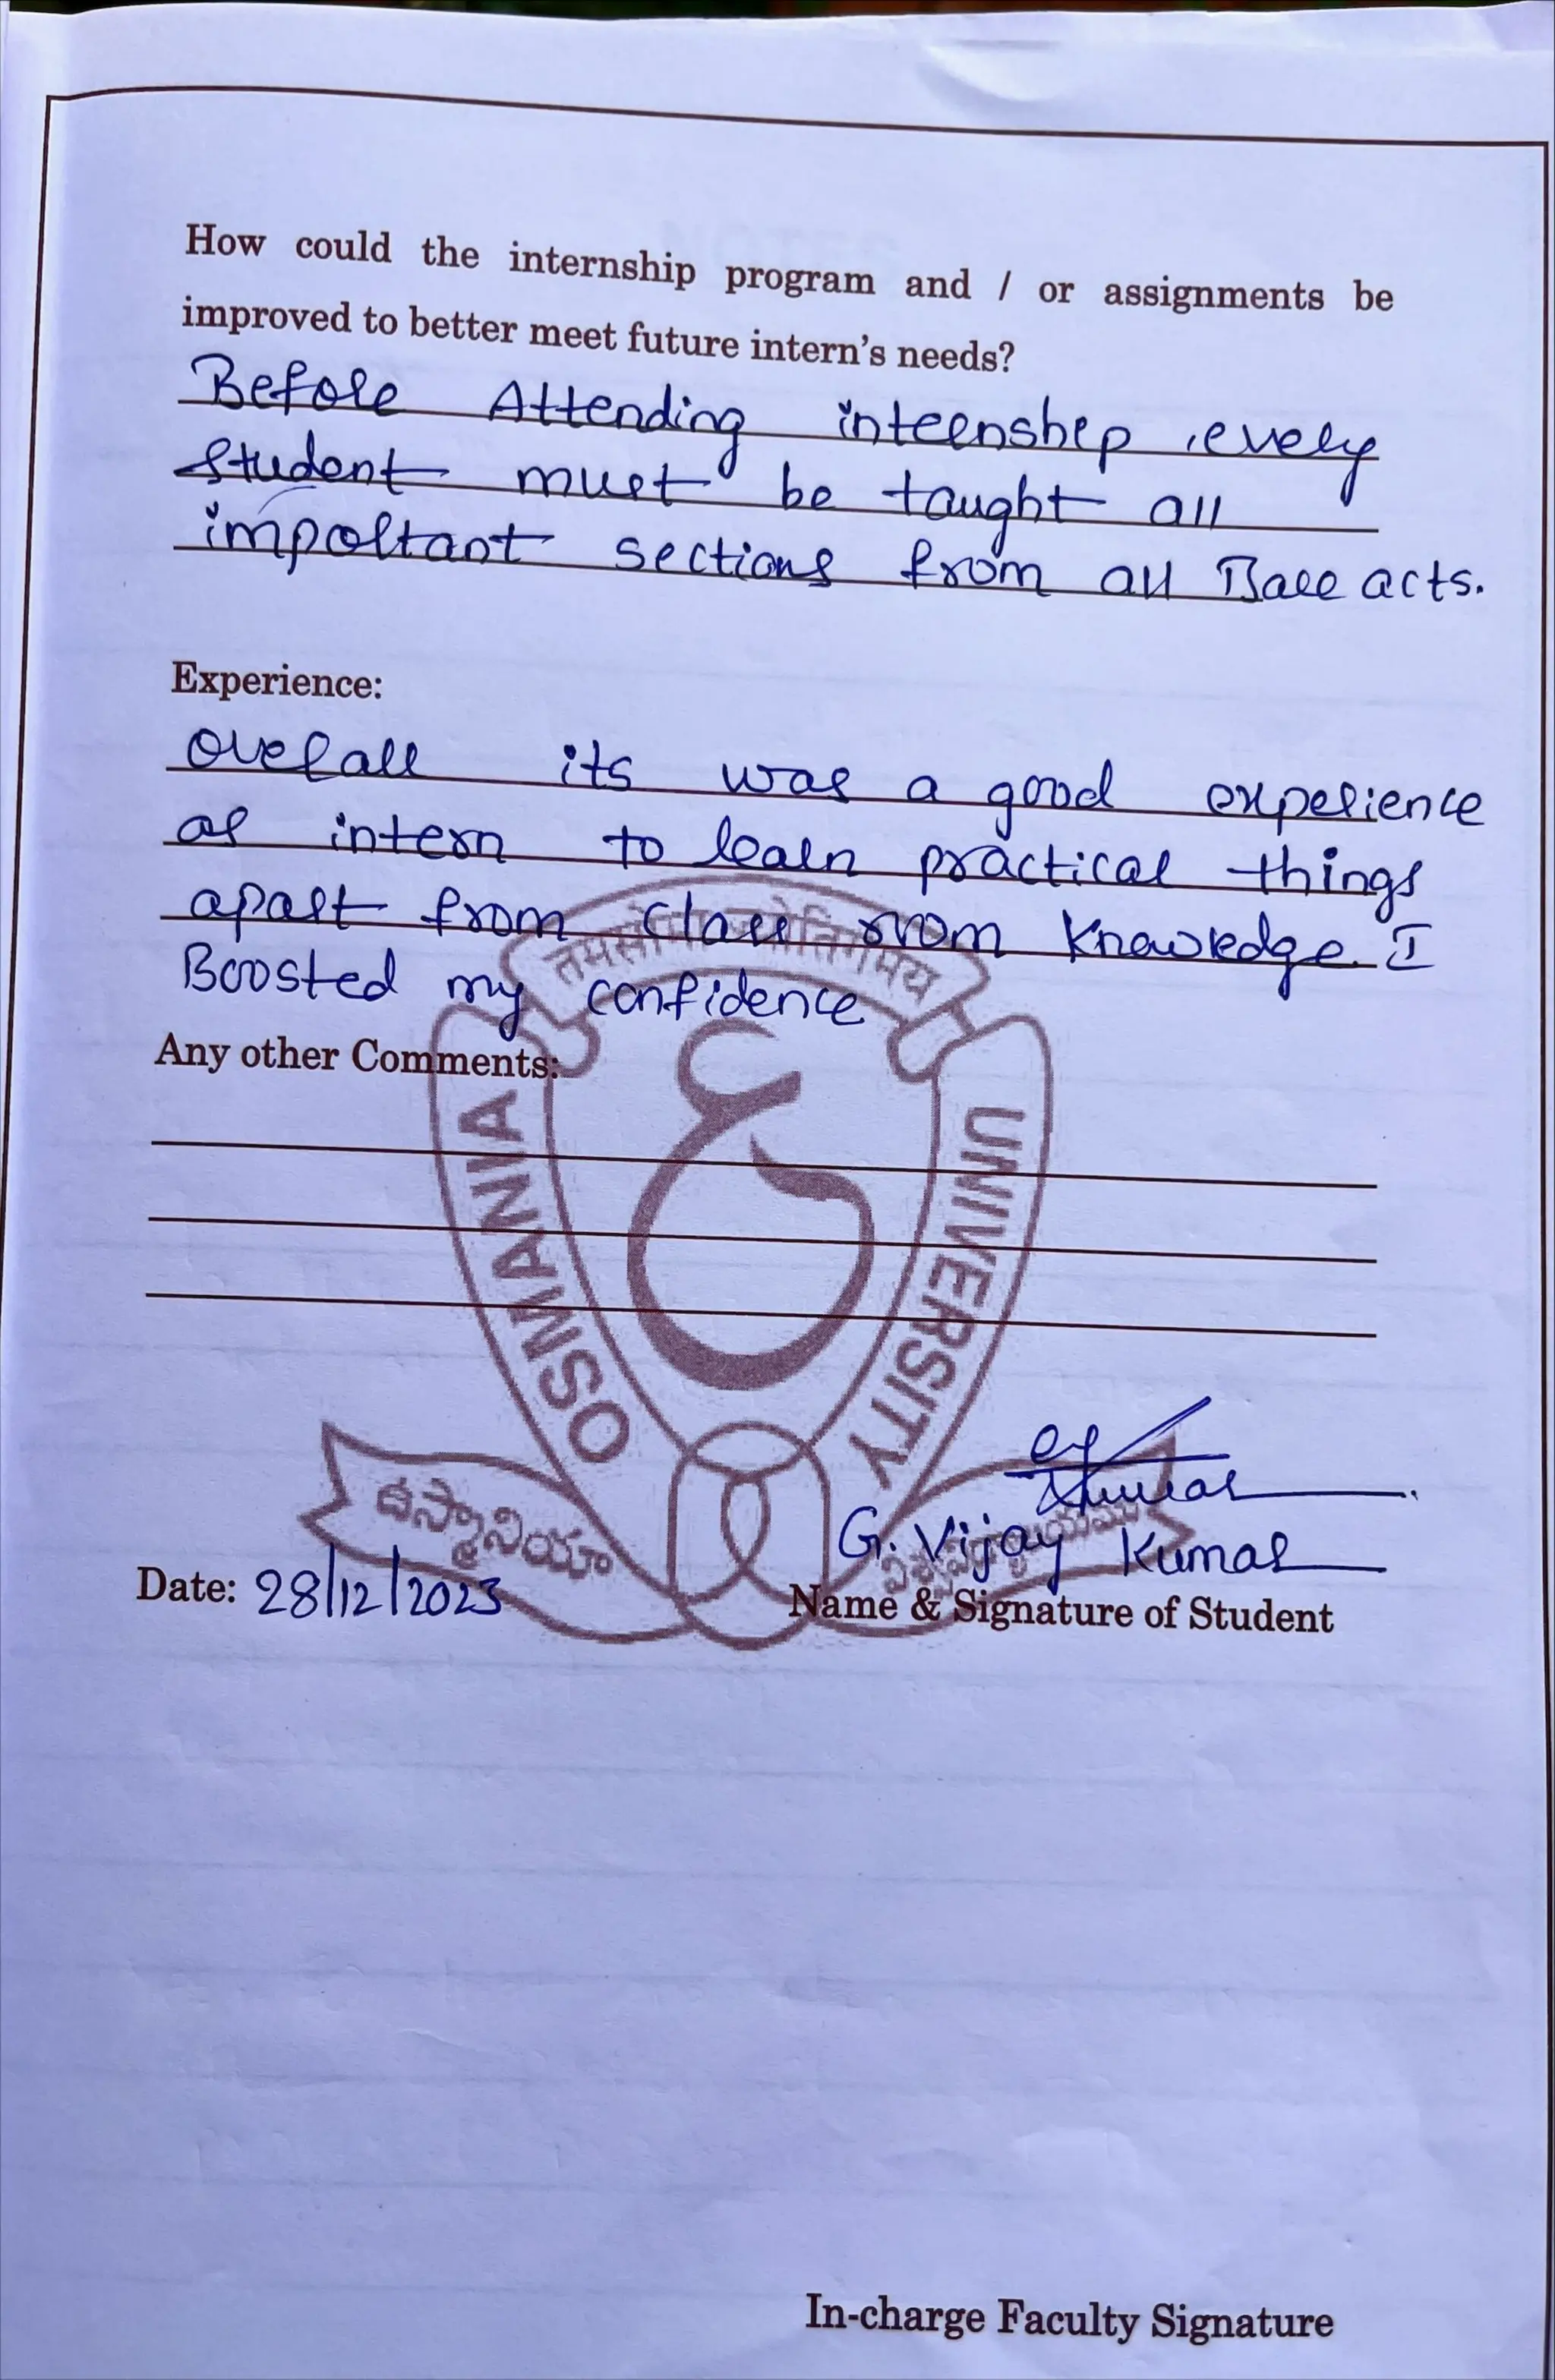 How could the internship program and / or assignments be
improved to better meet future intern's needs?
Before Attending internship, every
student must be taught all
important sections from all Bare acts.
Experience:
Overall its was a good experience
as intern to learn practical things
apart from class room knowledge. I
Boosted my confidence
Any other Comments:
तमसोमा ज्योतिर्गमय
OSMANIA
UNIVERSITY
ఉస్మానియా
G. Vijay Kumar
Date: 28/12/2023
Name & Signature of Student
In-charge Faculty Signature